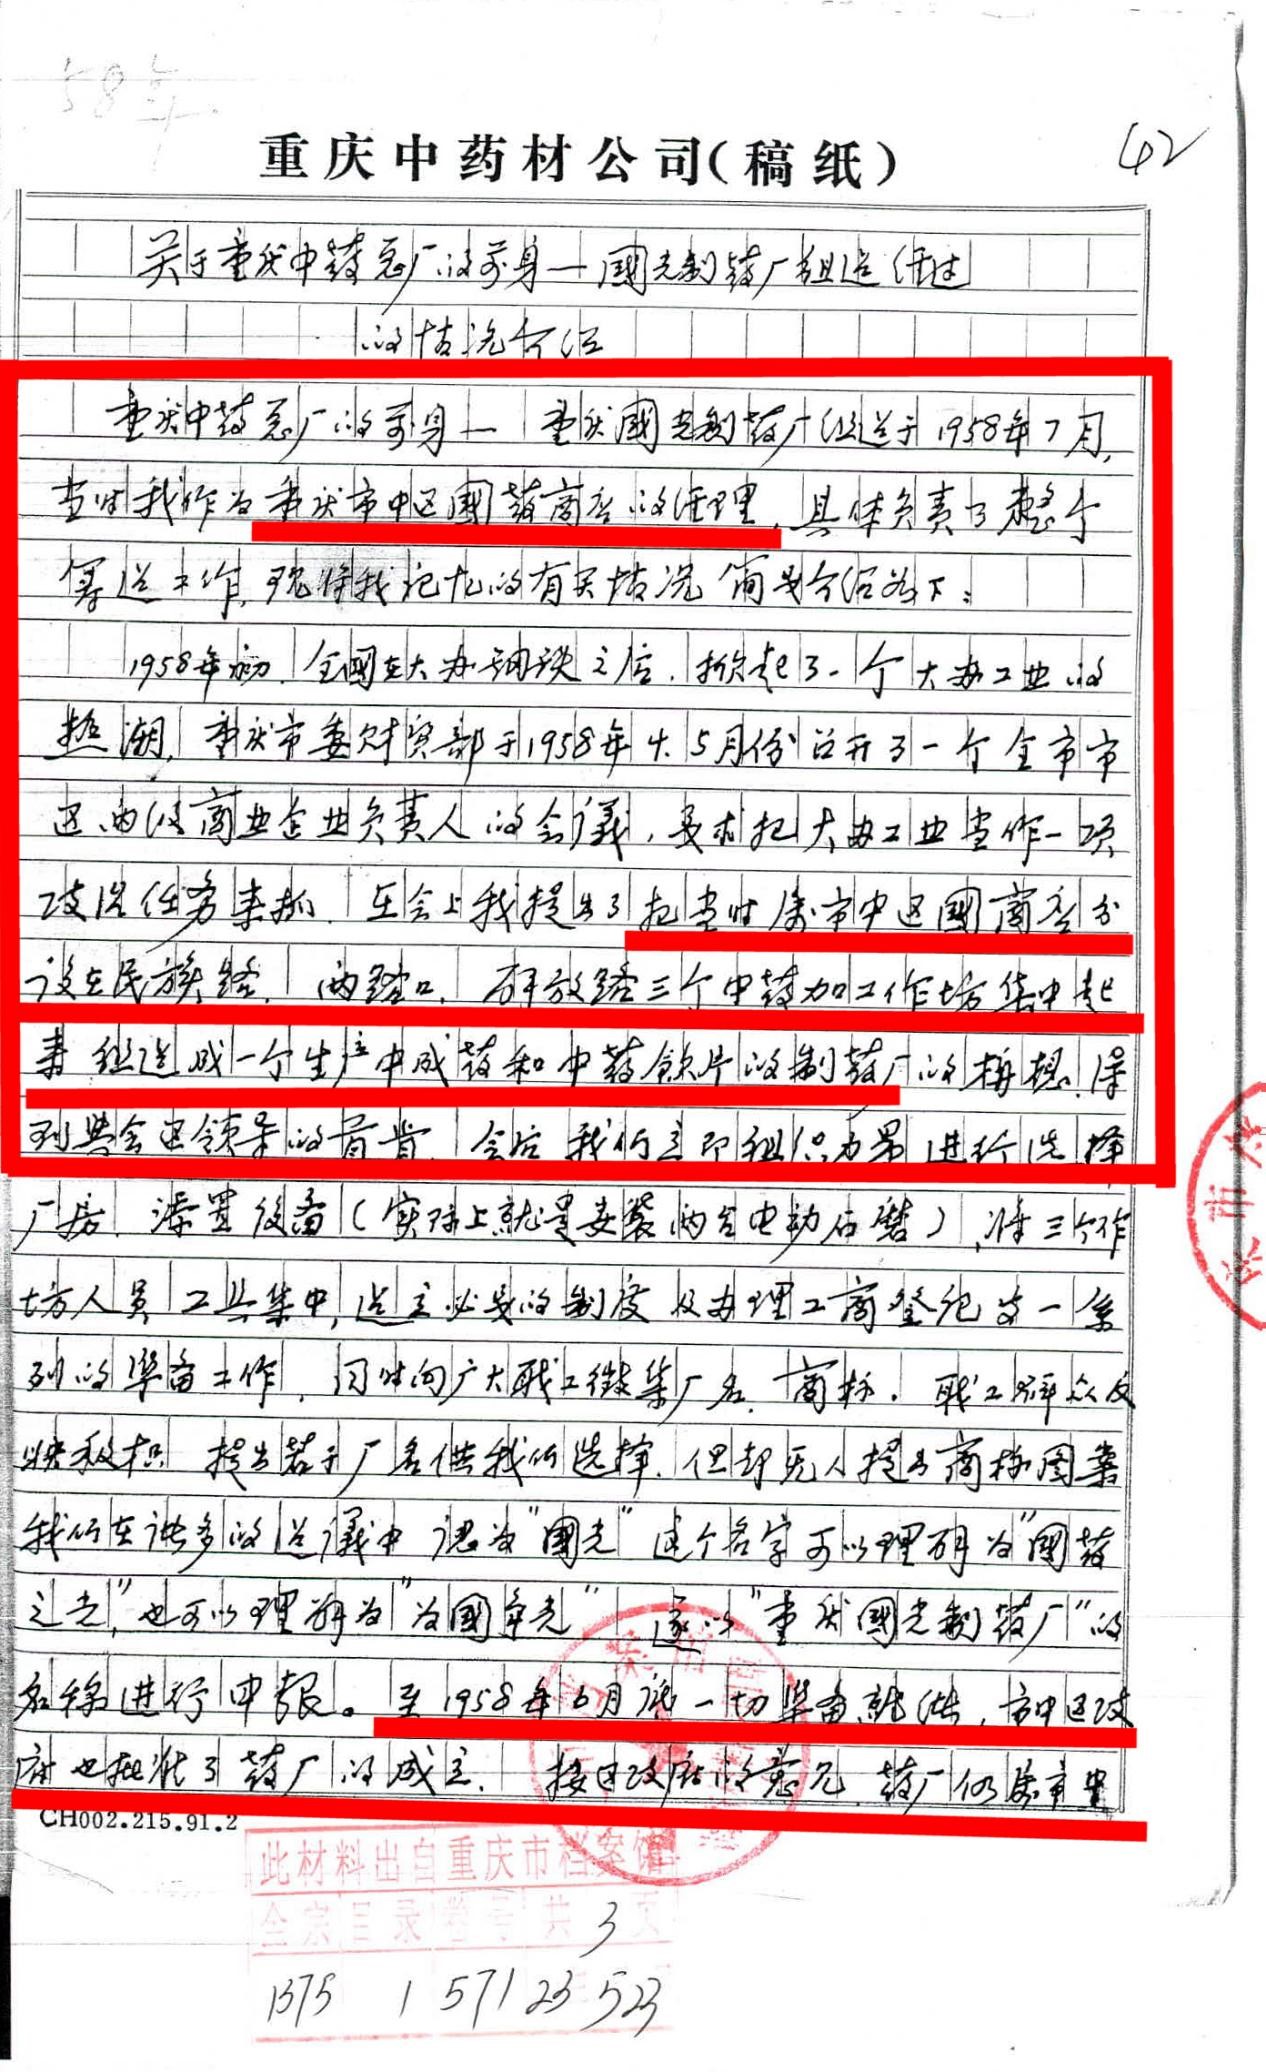 58年
重庆中药材公司(稿纸)
42
关于重庆中药总厂的前身—國光制药厂组造经过
的情况介绍
重庆中药总厂的前身—重庆國光制药厂组造于1958年7月,
当时我作为重庆市中区國药商店的经理,具体负责了整个
筹造工作,现将我记忆的有关情况简要介绍如下:
1958年初,全國在大办钢铁之后,掀起了一个大办工业的
热潮,重庆市委财贸部于1958年4、5月份召开了一个全市市
区两级商业企业负责人的会議,要求把大办工业当作一项
政治任务来抓.在会上我提出了把当时属市中区國药商店分
设在民族路,两路口,解放路三个中药加工作坊集中起
来组造成一个生产中成药和中药飲片的制药厂的构想,得
到與会区领导的首肯.会后我们立即组织力量进行选择
厂房,添置设备(实际上就是安装两台电动石磨),将三个作
坊人员工具集中,造立必要的制度及办理工商登纪等一系
列的準备工作,同时向广大职工徵集厂名、商标.职工群众反
映积极 提出若干厂名供我们选择.但却无人提出商标图案
我们在许多的造議中 认为"國光"这个名字可以理解为"國药
之光",也可以理解为"为國争光" 遂以"重庆國光制药厂"的
名称进行申报。至1958年6月底一切準备就绪,市中区政
府也批准了药厂的成立.按区政府的意见,药厂仍属市中
CH002.215.91.2
此材料出自重庆市档案馆
全宗 目录 卷号 共3页
1375 1 571 23 523